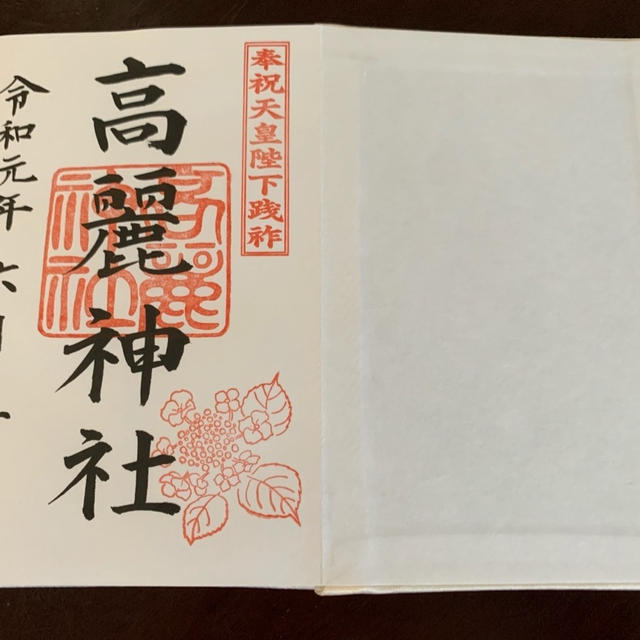 奉祝天皇陛下践祚
高麗神社
令和元年六月